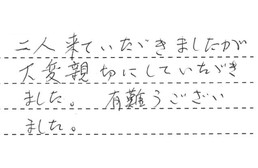 二人来ていただきましたが
大変親切にしていただき
ました。有難うござい
ました。